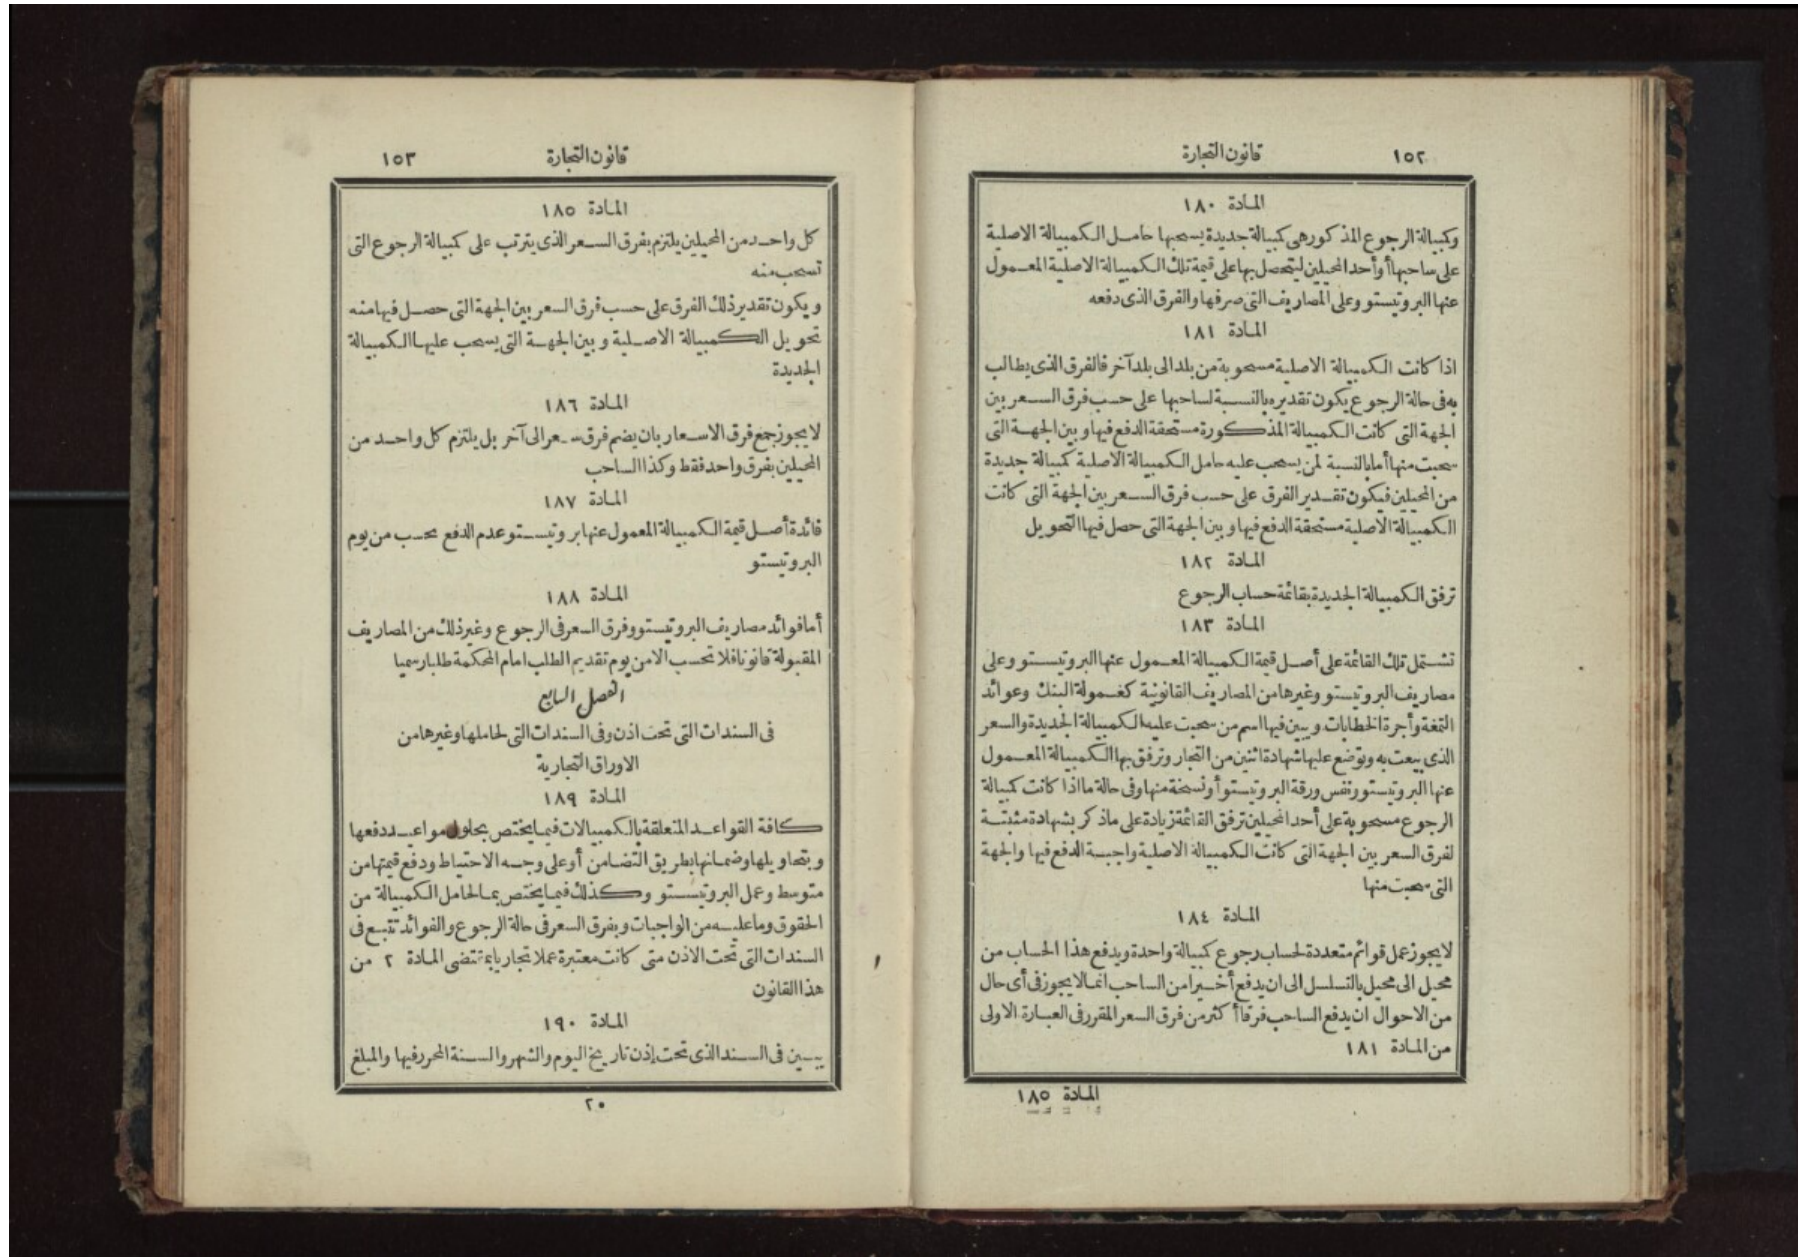 ١٥٢
قانون التجارة
المادة ١٨٠
وكمبيالة الرجوع المذكور هى كمبيالة جديدة يسحبها حامل الكمبيالة الاصلية
على ساحبها أو أحد المحيلين ليتحصل بها على قيمة تلك الكمبيالة الاصلية المعمول
عنها البروتيستو وعلى المصاريف التى صرفها والفرق الذى دفعه
المادة ١٨١
اذا كانت الكمبيالة الاصلية مسحوبة من بلد الى بلد آخر فالفرق الذى يطالب
به فى حالة الرجوع يكون تقديره بالنسبة لساحبها على حسب فرق السعر بين
الجهة التى كانت الكمبيالة المذكورة مستحقة الدفع فيها وبين الجهة التى
سحبت منها أما بالنسبة لمن يسحب عليه حامل الكمبيالة الاصلية كمبيالة جديدة
من المحيلين فيكون تقدير الفرق على حسب فرق السعر بين الجهة التى كانت
الكمبيالة الاصلية مستحقة الدفع فيها وبين الجهة التى حصل فيها التحويل
المادة ١٨٢
ترفق الكمبيالة الجديدة بقائمة حساب الرجوع
المادة ١٨٣
تشتمل تلك القائمة على أصل قيمة الكمبيالة المعمول عنها البروتيستو وعلى
مصاريف البروتيستو وغيرها من المصاريف القانونية كعمولة البنك وعوائد
التمغة وأجرة الخطابات ويبين فيها اسم من سحبت عليه الكمبيالة الجديدة والسعر
الذى بيعت به وتوضع عليها شهادة اثنين من التجار وترفق بها الكمبيالة المعمول
عنها البروتيستو ونفس ورقة البروتيستو أو نسخة منها وفى حالة ما اذا كانت كمبيالة
الرجوع مسحوبة على أحد المحيلين ترفق القائمة زيادة على ما ذكر بشهادة مثبتة
لفرق السعر بين الجهة التى كانت الكمبيالة الاصلية واجبة الدفع فيها والجهة
التى سحبت منها
المادة ١٨٤
لا يجوز عمل قوائم متعددة لحساب رجوع كمبيالة واحدة ويدفع هذا الحساب من
محيل الى محيل بالتسلسل الى ان يدفع أخيرا من الساحب انما لا يجوز فى أى حال
من الاحوال ان يدفع الساحب فرقا أكثر من فرق السعر المقرر فى العبارة الاولى
من المادة ١٨١
المادة ١٨٥
قانون التجارة
١٥٣
المادة ١٨٥
كل واحد من المحيلين يلتزم بفرق السعر الذى يترتب على كمبيالة الرجوع التى
تسحب منه
ويكون تقدير ذلك الفرق على حسب فرق السعر بين الجهة التى حصل فيها منه
تحويل الكمبيالة الاصلية وبين الجهة التى يسحب عليها الكمبيالة
الجديدة
المادة ١٨٦
لا يجوز جمع فرق الاسعار بان يضم فرق سعر الى آخر بل يلتزم كل واحد من
المحيلين بفرق واحد فقط وكذا الساحب
المادة ١٨٧
فائدة أصل قيمة الكمبيالة المعمول عنها بروتيستو عدم الدفع تحسب من يوم
البروتيستو
المادة ١٨٨
أما فوائد مصاريف البروتيستو وفرق السعر فى الرجوع وغير ذلك من المصاريف
المقبولة قانونا فلا تحسب الا من يوم تقديم الطلب امام المحكمة طلبا رسميا
الفصل السابع
فى السندات التى تحت اذن وفى السندات التى لحاملها وغيرها من
الاوراق التجارية
المادة ١٨٩
كافة القواعد المتعلقة بالكمبيالات فيما يختص بحلول مواعيد دفعها
وبتحاويلها وضمانها بطريق التضامن أو على وجه الاحتياط ودفع قيمتها من
متوسط وعمل البروتيستو وكذلك فيما يختص بما لحامل الكمبيالة من
الحقوق وما عليه من الواجبات وبفرق السعر فى حالة الرجوع والفوائد تتبع فى
السندات التى تحت الاذن متى كانت معتبرة عملا تجاريا بمقتضى المادة ٢ من
هذا القانون
المادة ١٩٠
يبين فى السند الذى تحت إذن تاريخ اليوم والشهر والسنة المحرر فيها والمبلغ
٢٠